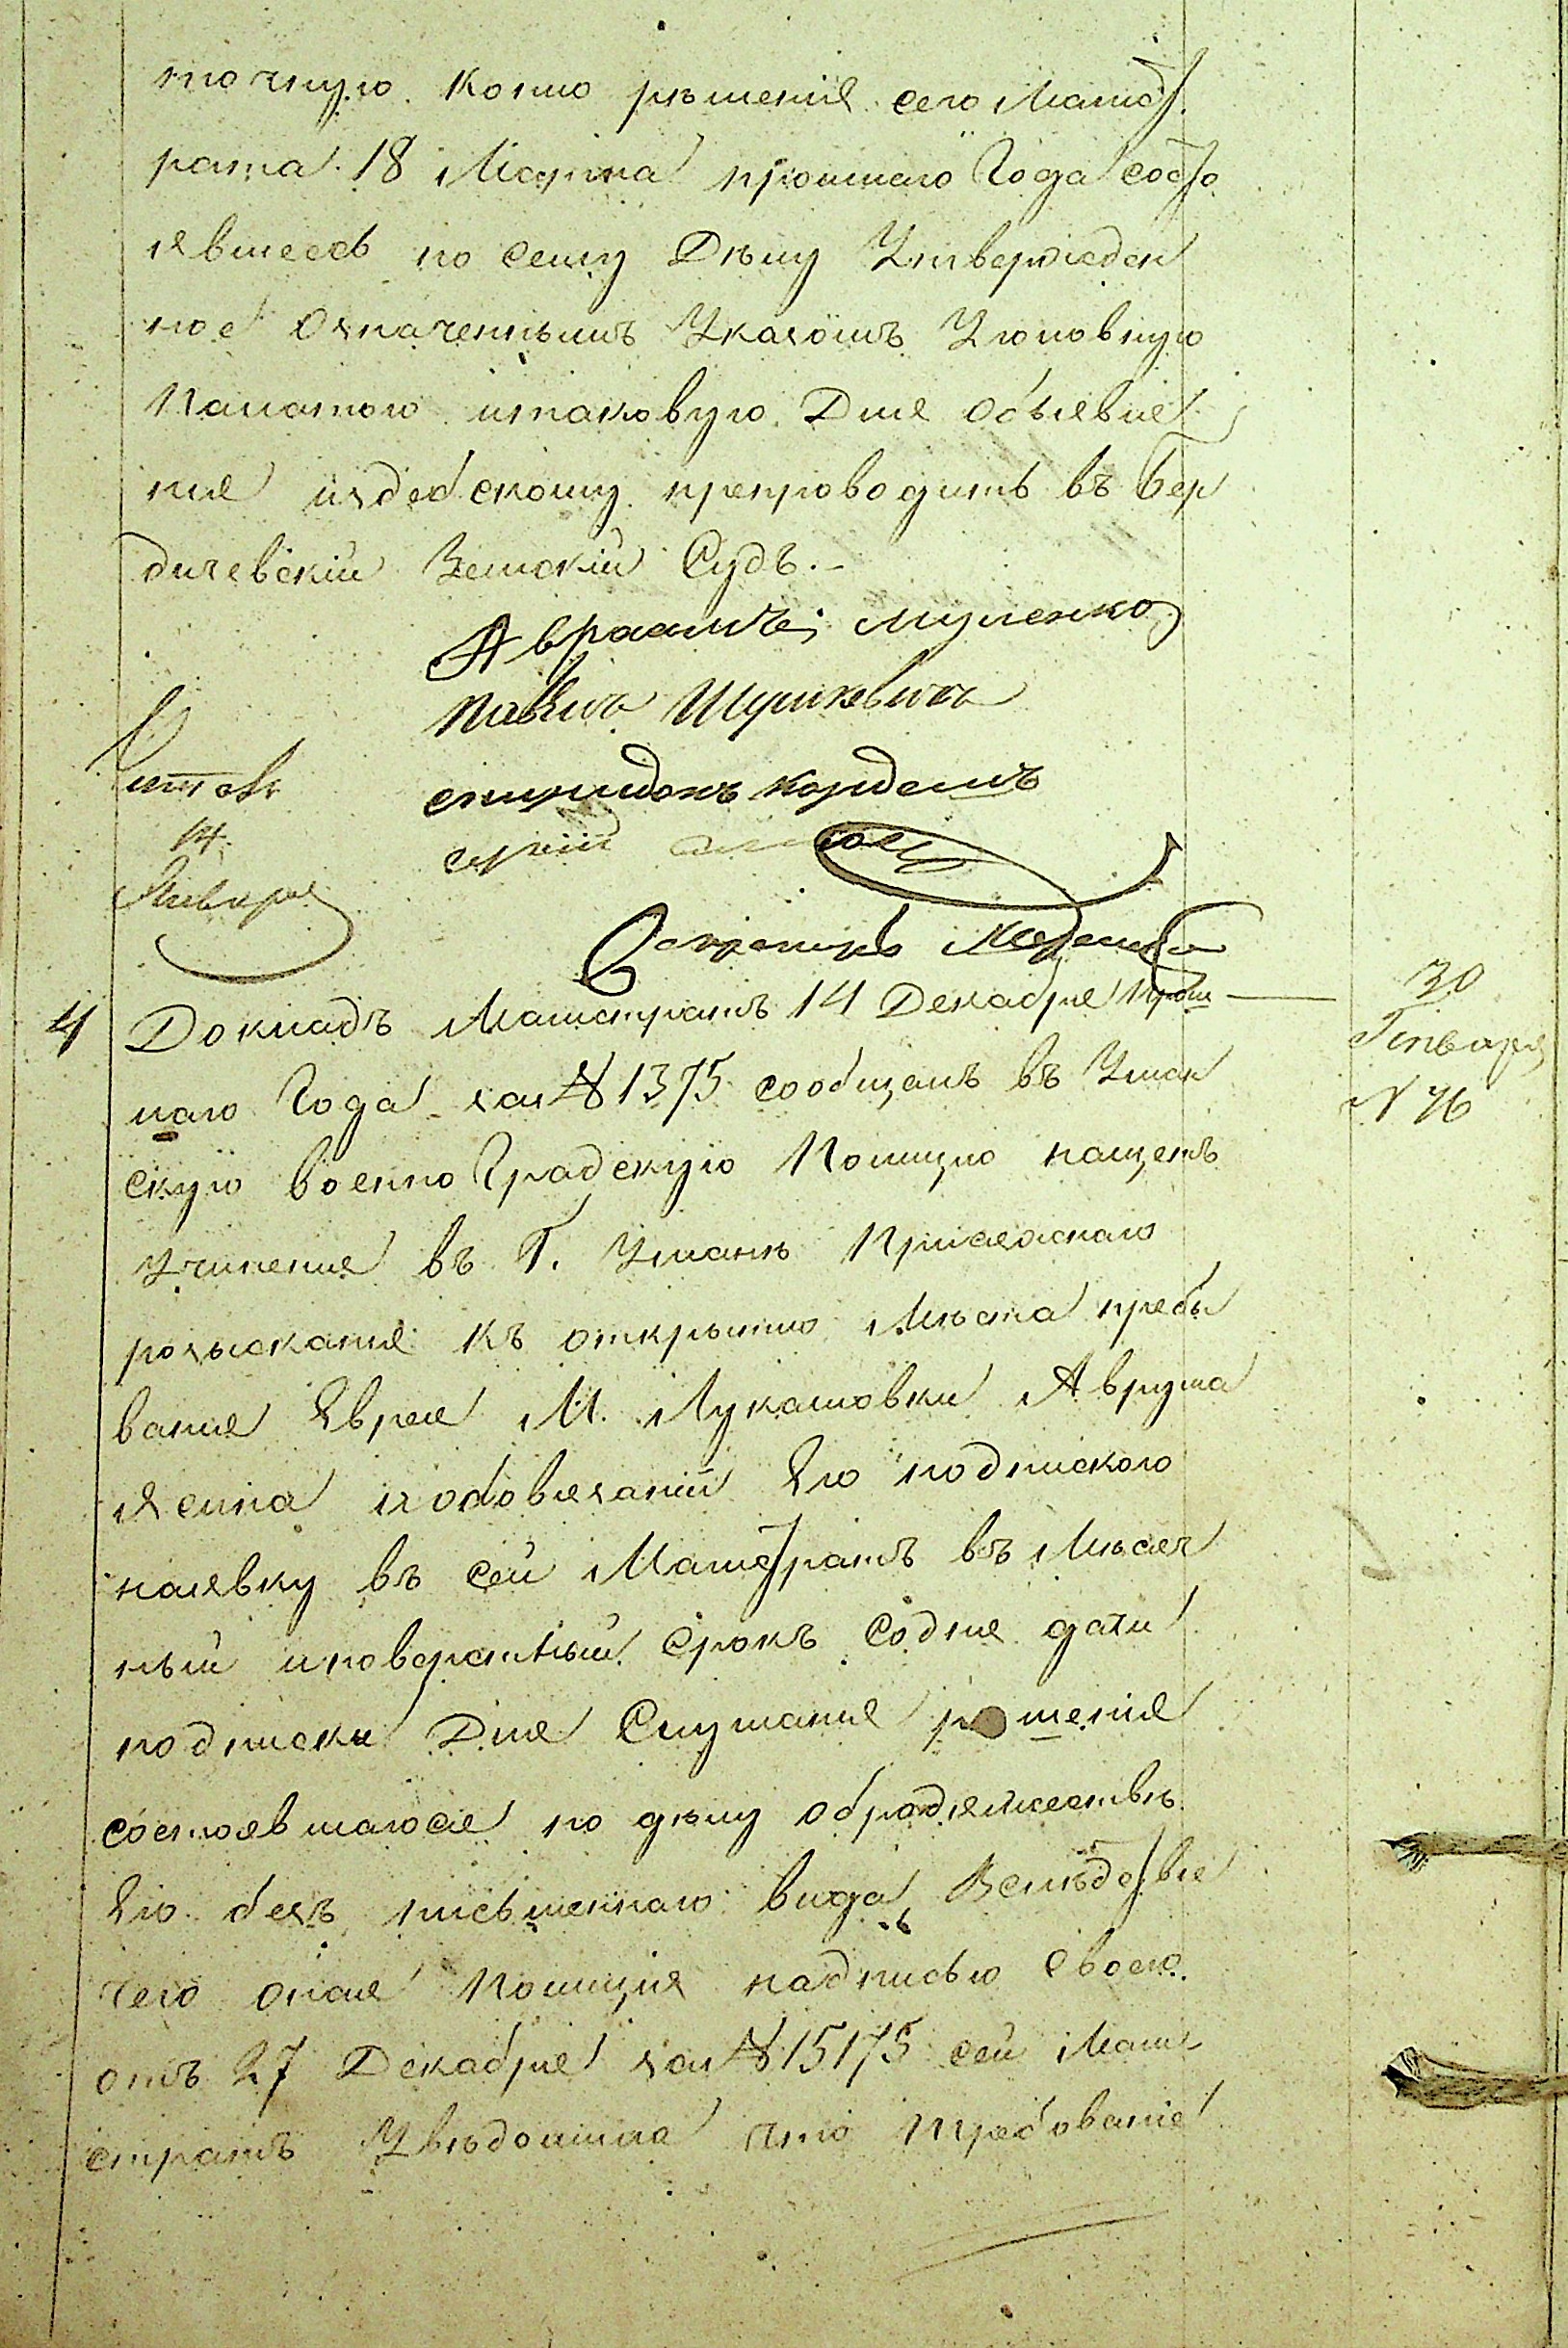 точную копію рѣшенія сего Магист
рата 18 Марта прошлаго Года состо
явшеесь по сему Дѣлу Утвержден
ное Означеннымъ Указомъ Уголовную
Палатою итаковую Для объявле
ния издебскому препроводить въ Бер
дичевскій Земскій Судъ.-
Авраамъ Муленко
Павелъ Шушкевичъ
спиридонъ корделъ
сергій
Секретарь
Читалъ
14
Января
4 Докладъ Магистратъ 14 Декабря Прош
лаго Года за № 1375 сообщалъ въ Уман
скую военно Градскую Полицію нащетъ
Учинения въ Г. Умани Присяжнаго
розыскания къ открытию Мѣста пребы
вания Еврея М. Лукашовки Аврума
Ясина и обовязании Его подпискою
наявку въ сей Магистратъ въ Мѣсяч
ный иповоротный срокъ Содня дачи
подписки Для Слушания рѣшения
состоявшагося по дѣлу обродяжествѣ
Его безъ письменнаго вида, Вслѣдствіе
чего оная Полиция надписью Своею
отъ 27 Декабря за № 15175 сей Маги
стратъ Увѣдомила что требование
30
Генваря
№ 76